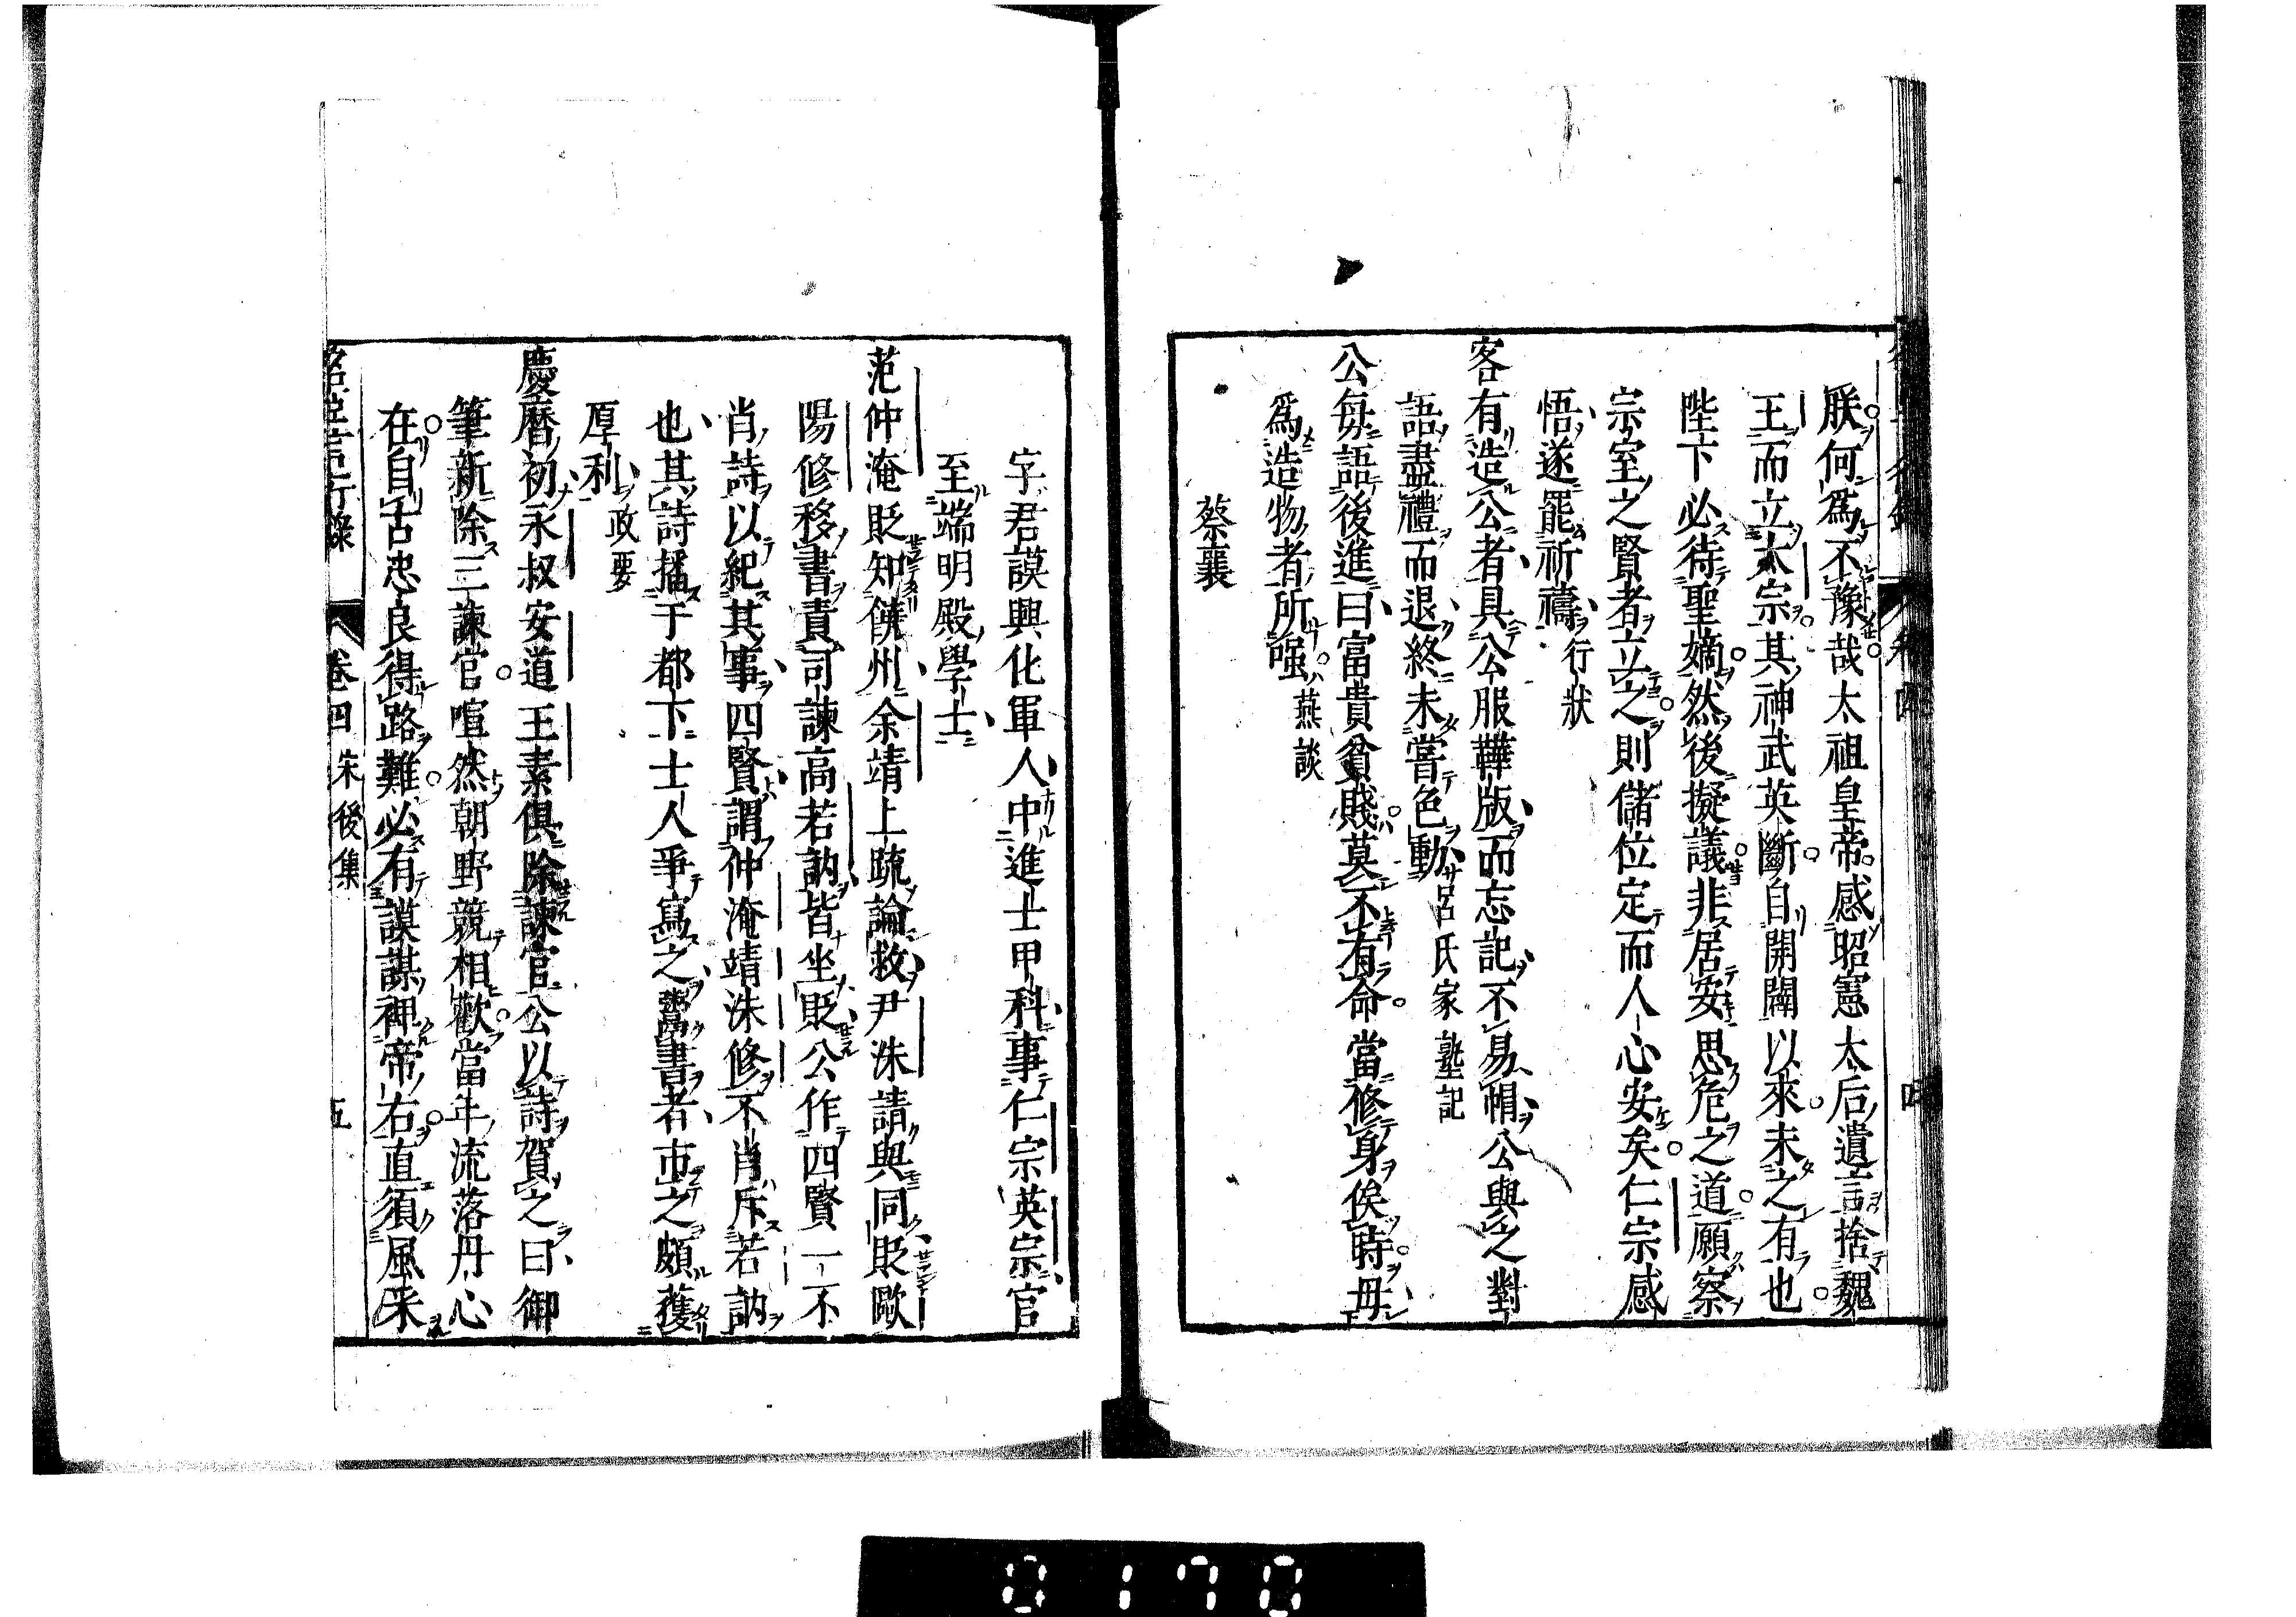 朕何爲不豫哉太祖皇帝感昭憲太后遺言捨魏
王而立太宗其神武英斷自開闢以來未之有也
陛下必待聖嫡然後擬議非居安思危之道願察
宗室之賢者立之則儲位定而人心安矣仁宗感
悟遂罷祈禱行狀
客有造公者具公服鞾版而忘記不易帽公與之對
語盡禮而退終未嘗色動呂氏家塾記
公每語後進曰富貴貧賤莫不有命當修身俟時毋
爲造物者所强燕談
蔡襄
字君謨興化軍人中進士甲科事仁宗英宗官
至端明殿學士
范仲淹貶知饒州余靖上疏論救尹洙請與同貶歐
陽修移書責司諫高若訥皆坐貶公作四賢一不
肖詩以紀其事四賢謂仲淹靖洙修不肖斥若訥
也其詩播于都下士人爭寫之鬻書者市之頗獲
厚利政要
慶曆初永叔安道王素俱除諫官公以詩賀之曰御
筆新除三諫官喧然朝野競相歡當年流落丹心
在自古忠良得路難必有謨謀裨帝右直須風采
名臣言行錄 卷四 宋後集 五